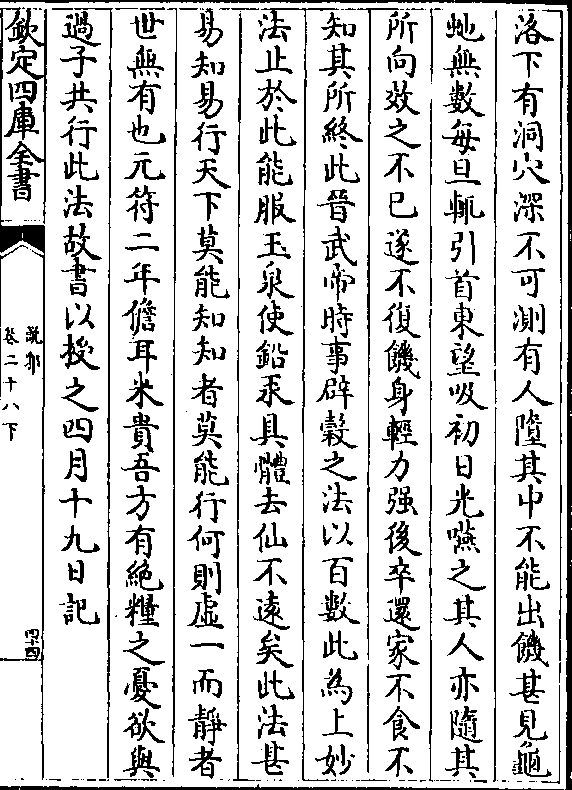 洛下有洞穴深不可測有人墮其中不能出饑甚見龜
虵無數每旦輒引首東望吸初日光嚥之其人亦隨其
所向效之不已遂不復饑身輕力强後卒還家不食不
知其所終此晉武帝時事辟穀之法以百數此為上妙
法止於此能服玉泉使鉛汞具體去仙不遠矣此法甚
易知易行天下莫能知知者莫能行何則虛一而靜者
世無有也元符二年儋耳米貴吾方有絶糧之憂欲與
過子共行此法故書以授之四月十九日記
欽定四庫全書
説郛
卷二十八下
四十四